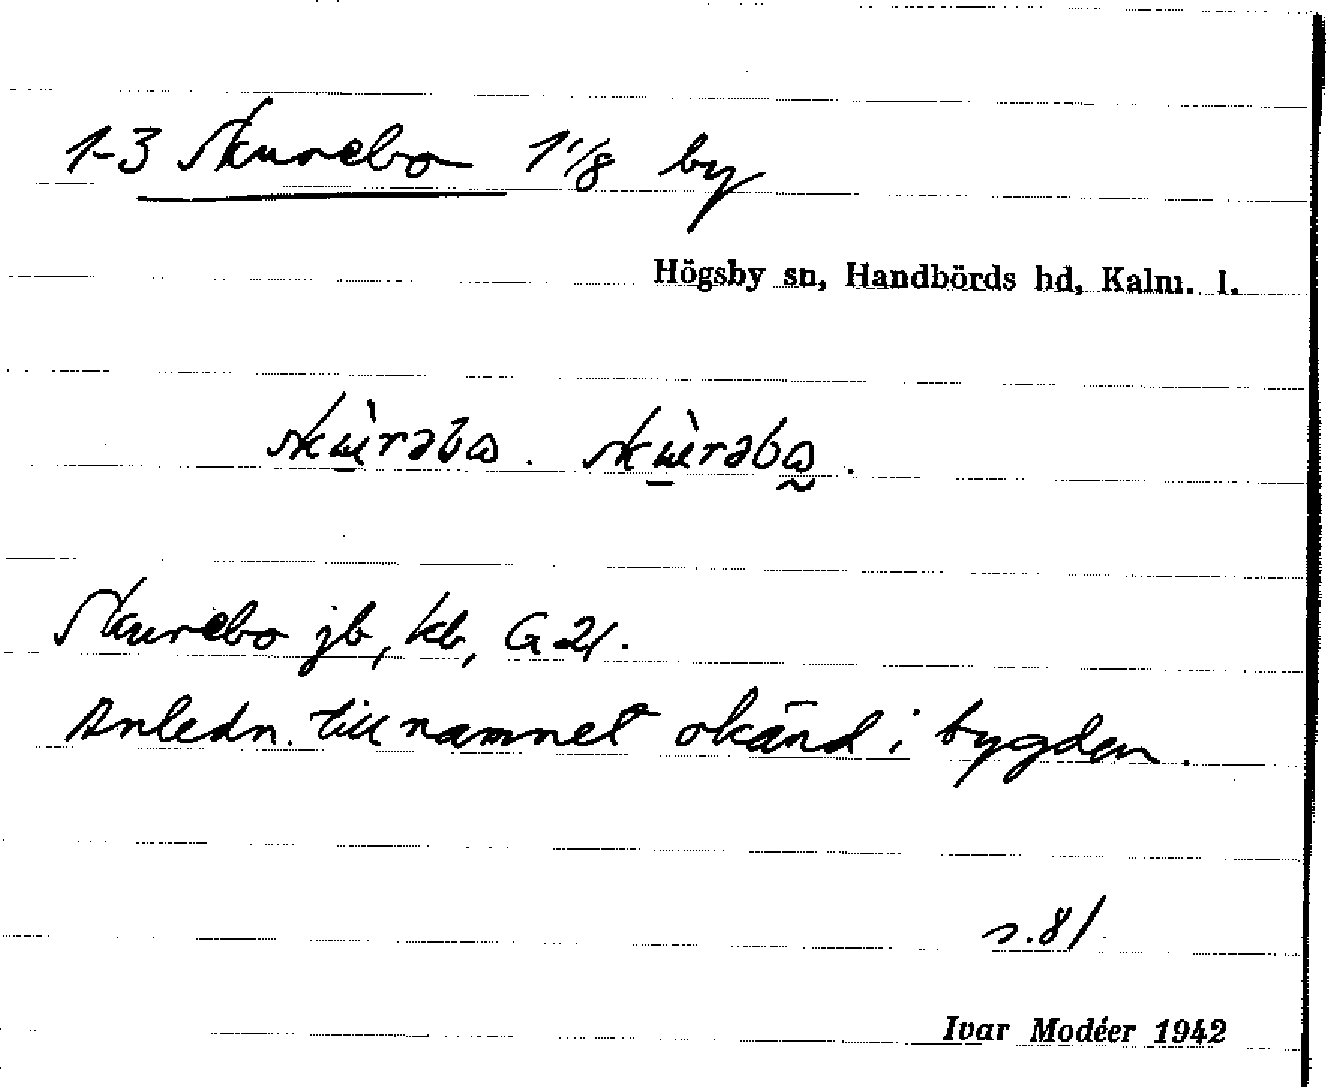 1-3 Skurebo 1 1/8 by
Högsby sn, Handbörds hd, Kalm. l.
Skurebo jb, kb, G 21.
Anledn. till namnet okänd i bygden.
s. 81
Ivar Modéer 1942